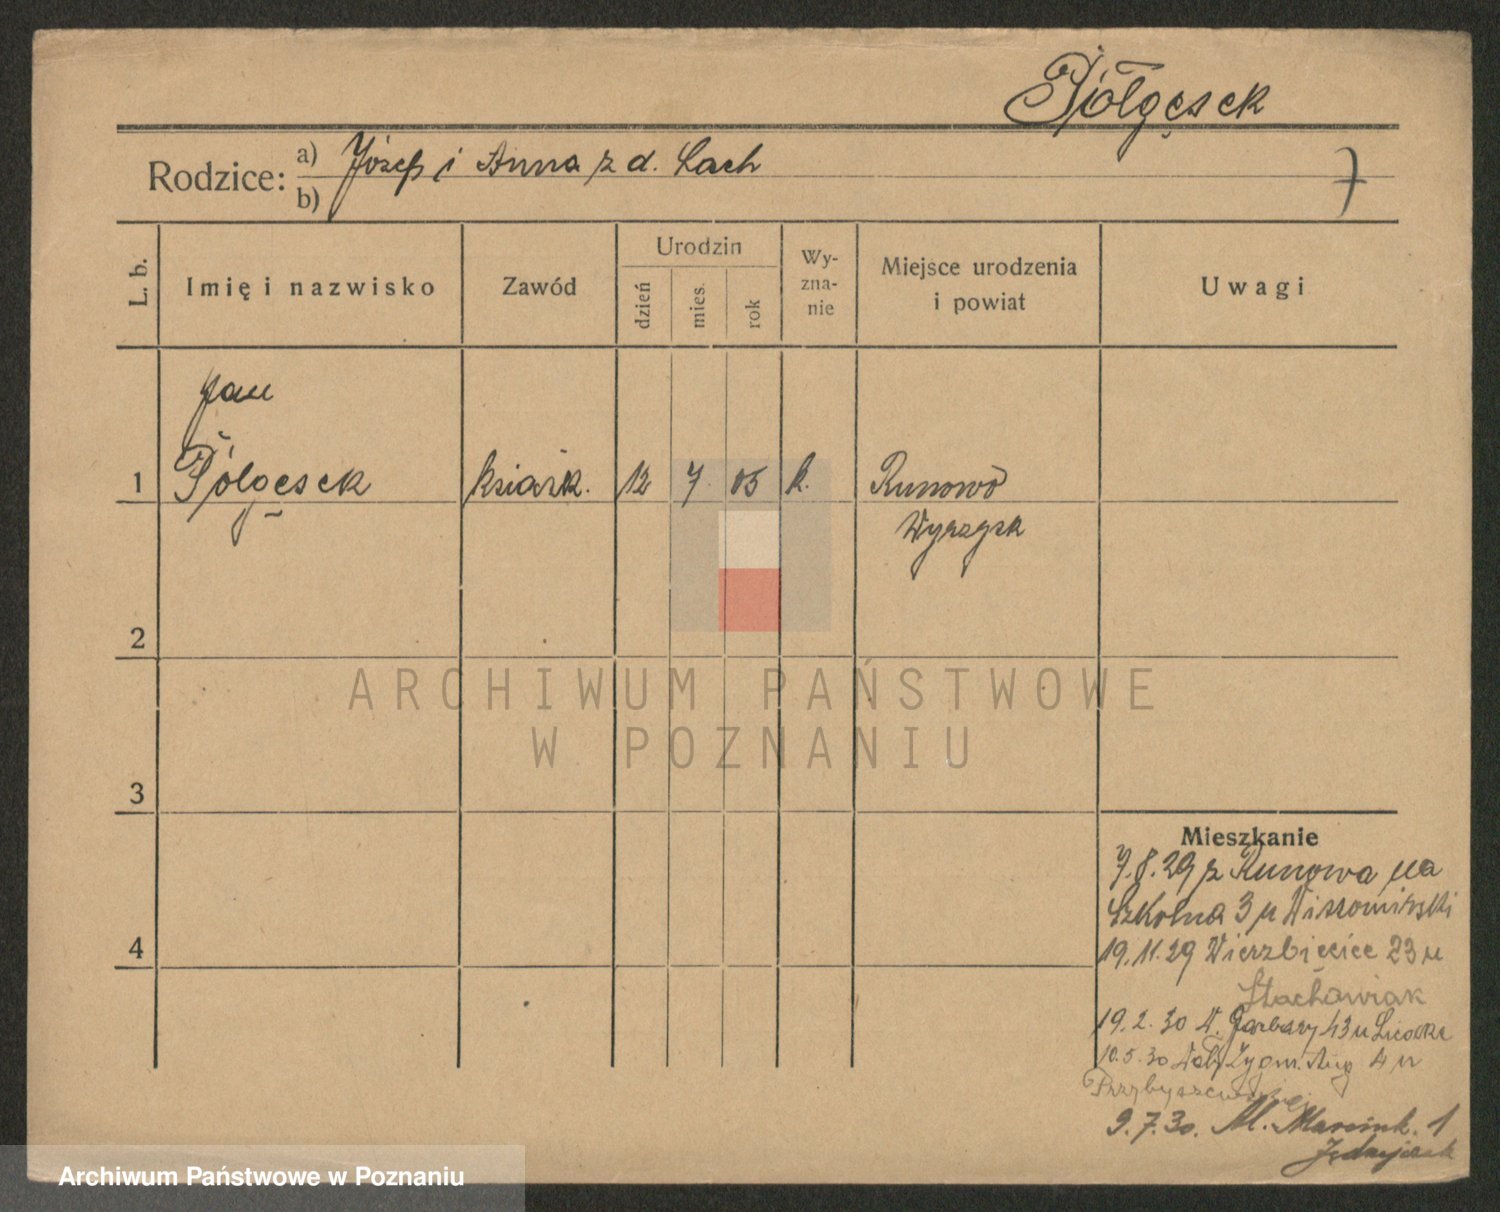 Pólgęsek
Rodzice: a) Józef i Anna z d. Lach
b)
7
L. b.
Imię i nazwisko
Zawód
Urodzin
dzień
mies.
rok
Wy-
zna-
nie
Miejsce urodzenia
i powiat
Uwagi
Jan
1 Pólgęsek książk. 12 7 05 k. Runowo
Wyrzysk
2
3
4
Mieszkanie
7.8.29 z Runowa na
Szkolna 3 u
19.11.29 Wierzbięcice 23 u
Stachowiak
19.2.30 W. Garbary 43 u
10.5.30 Zygm. Aug 4 u
9.7.30. Al. Marcink. 1
ARCHIWUM PAŃSTWOWE
W POZNANIU
Archiwum Państwowe w Poznaniu